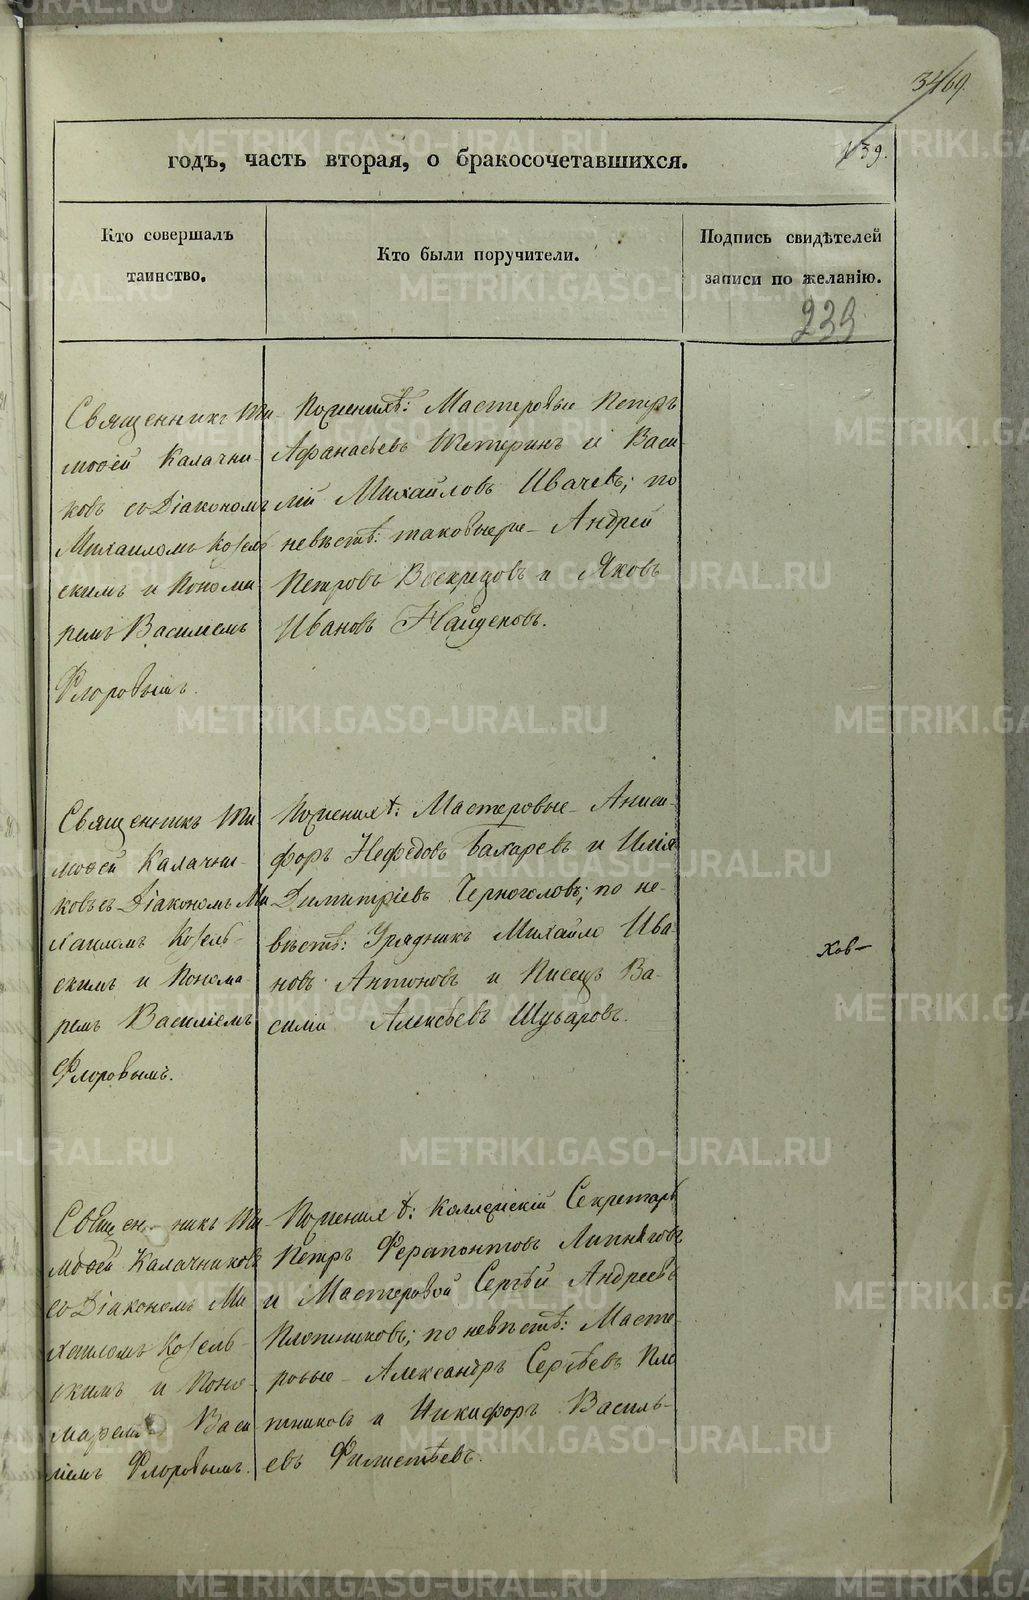 годъ, часть вторая, о бракосочетавшихся.
139.
Кто совершалъ
таинство.
Кто были поручители.
Подпись свидѣтелей
записи по желанію.
239
Священникъ Ти-
моѳей Калачни-
ковъ со Діакономъ
Михаиломъ Козель
скимъ и Понома
ремъ Василіемъ
Флоровымъ.
По женихѣ: Мастеровые Петръ
Афанасьевъ Тетеринъ и Васи-
лій Михайловъ Ивачевъ; по
невѣстѣ: таковыеже Андрей
Петровъ и Яковъ
Ивановъ Найденовъ.
Священникъ Ти
моѳей Калачни-
ковъ съ Діакономъ Ми
хаиломъ Козель-
скимъ и Понома
ремъ Василіемъ
Флоровымъ.
По женихѣ: Мастеровые Аниси-
форъ Нефедовъ Бахаревъ и Илія
Димитріевъ Черноголовъ; по не-
вѣстѣ: Урядникъ Михайло Ива-
новъ Антоновъ и Писецъ Ва-
силій Алексѣевъ Шуваровъ.
Священникъ Ти-
моѳей Калачниковъ
со Діакономъ Ми
хаиломъ Козель-
скимъ и Поно-
маремъ Васи
ліемъ Флоровымъ.
По женихѣ: Коллежскій Секретарь
Петръ Ферапонтовъ Липняговъ
и Мастеровой Сергѣй Андреевъ
Плотниковъ; по невѣстѣ: Масте
ровые Александръ Сергѣевъ Пло
тниковъ и Никифоръ Василь-
евъ Филистѣевъ.
METRIKI.GASO-URAL.RU